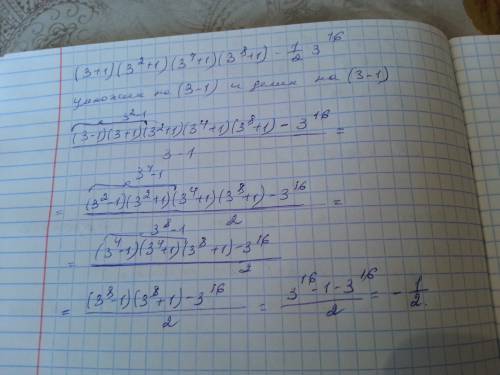 (3+1)(3²+1)(3⁴+1)(3⁸+1) - 1/2 3¹⁶
умножим на (3-1) и делим на (3-1)
3²-1
(3-1)(3+1)(3²+1)(3⁴+1)(3⁸+1) - 3¹⁶ =
3-1
3⁴-1
= (3²-1)(3²+1)(3⁴+1)(3⁸+1) - 3¹⁶ =
2
3⁸-1
= (3⁴-1)(3⁴+1)(3⁸+1) - 3¹⁶
2
= (3⁸-1)(3⁸+1) - 3¹⁶ / 2 = 3¹⁶-1-3¹⁶ / 2 = - 1/2.